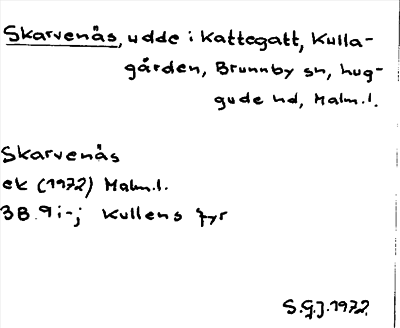 Skarvenäs, udde i Kattegatt, Kulla-
gården, Brunnby sn, Lug-
gude hd, Malm.l.
Skarvenäs
ek (1972) Malm.l.
3B 9i-j Kullens fyr
S.G.J. 1972.